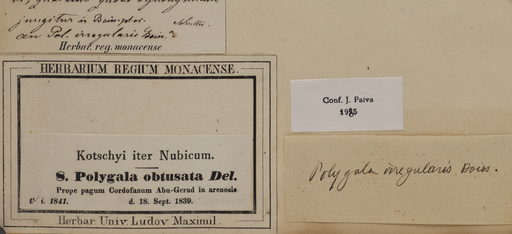 jungitur in Boiss.
an Pol. irregularis Boiss.?
Herbar. reg. monacense
HERBARIUM REGIUM MONACENSE.
Kotschyi iter Nubicum.
8. Polygala obtusata Del.
Prope pagum Cordofanum Abu-Gerad in arenosis
U. i. 1841. d. 18. Sept. 1839.
Herbar. Univ. Ludov. Maximil.
Conf. J. Paiva
1985
Polygala irregularis Boiss.